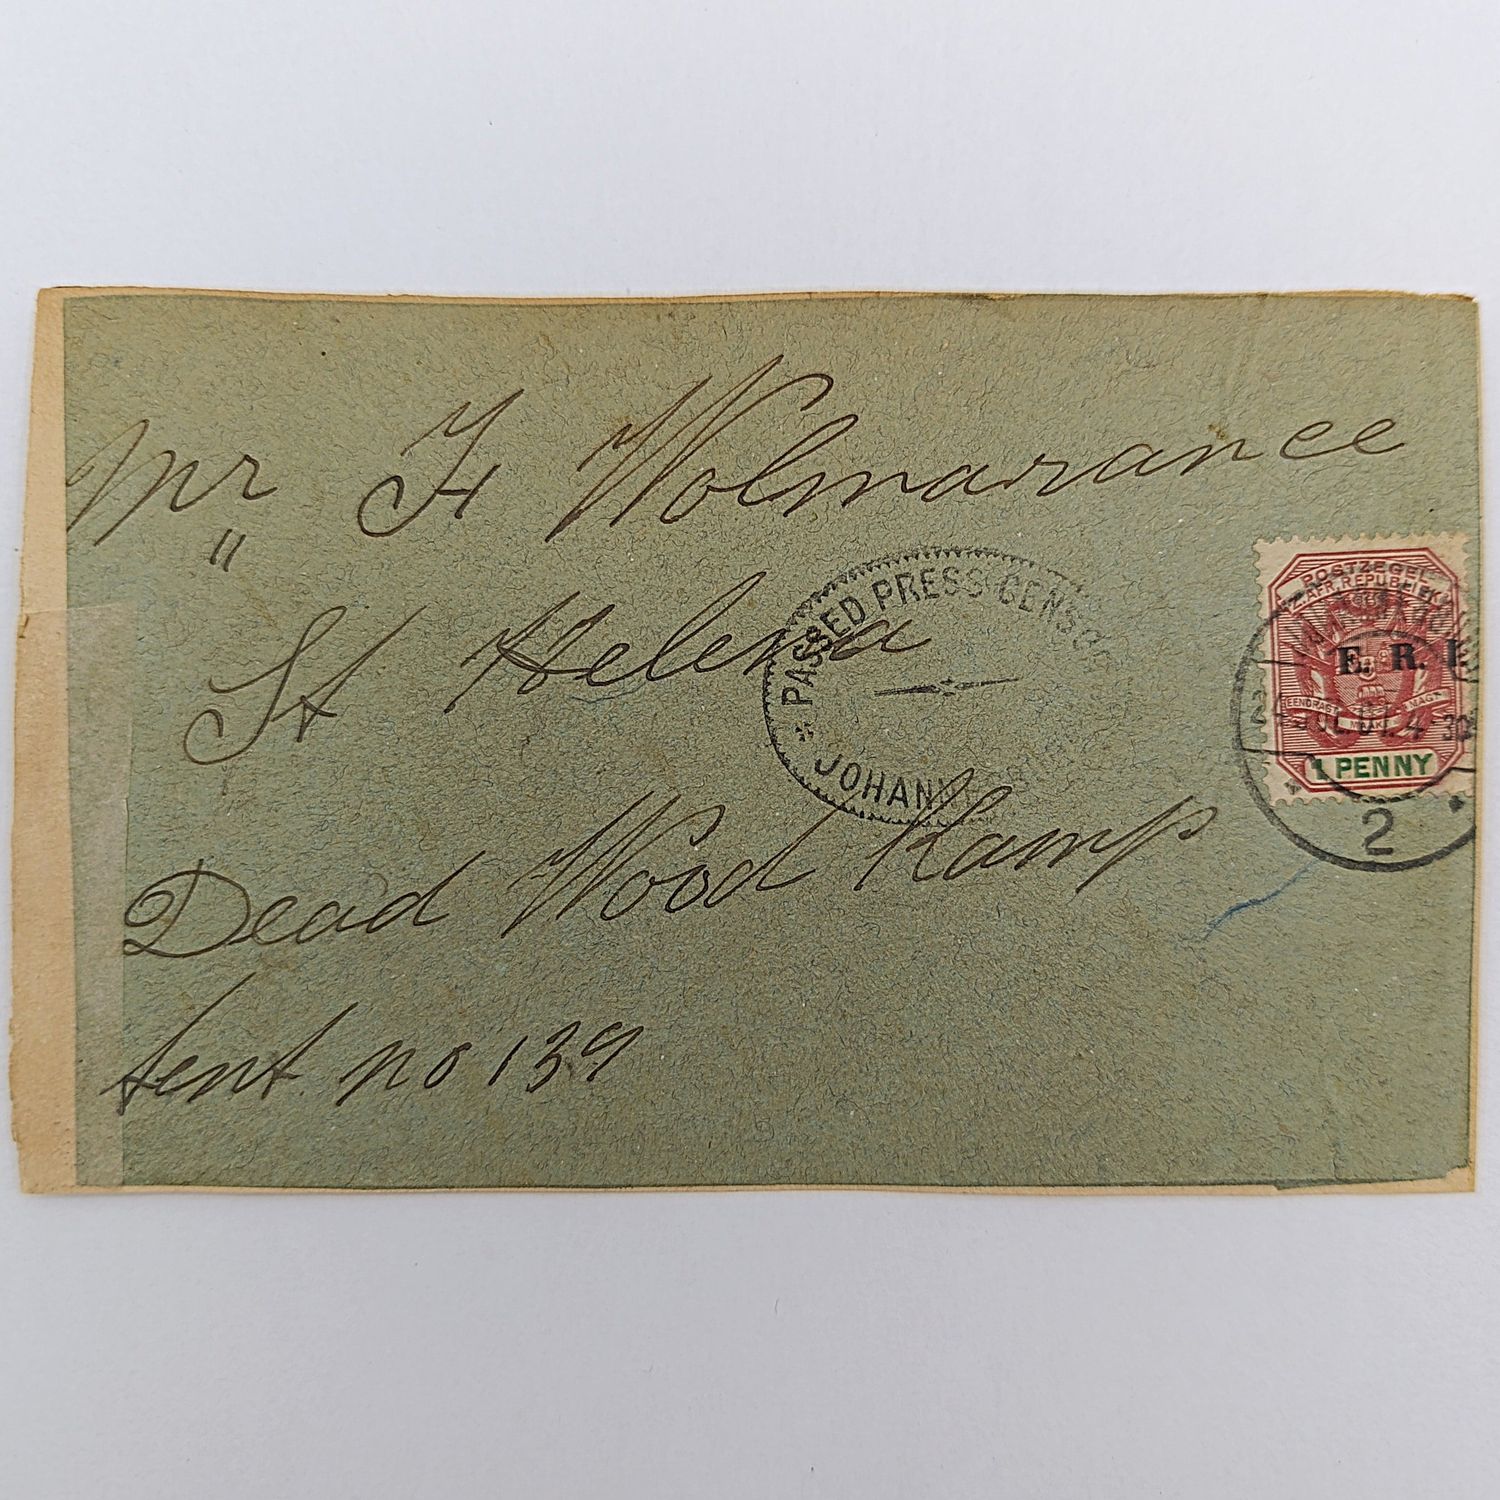 Mr F Wolmarance
"
St Helena
Dead Wood Kamp
tent no 139
* PASSED PRESS CENSOR
JOHANN
POSTZEGEL
Z. AFR. REPUBLIEK
E. R. I
EENDRAGT MAAKT MAGT
1 PENNY
JUL 01. 4-30
2